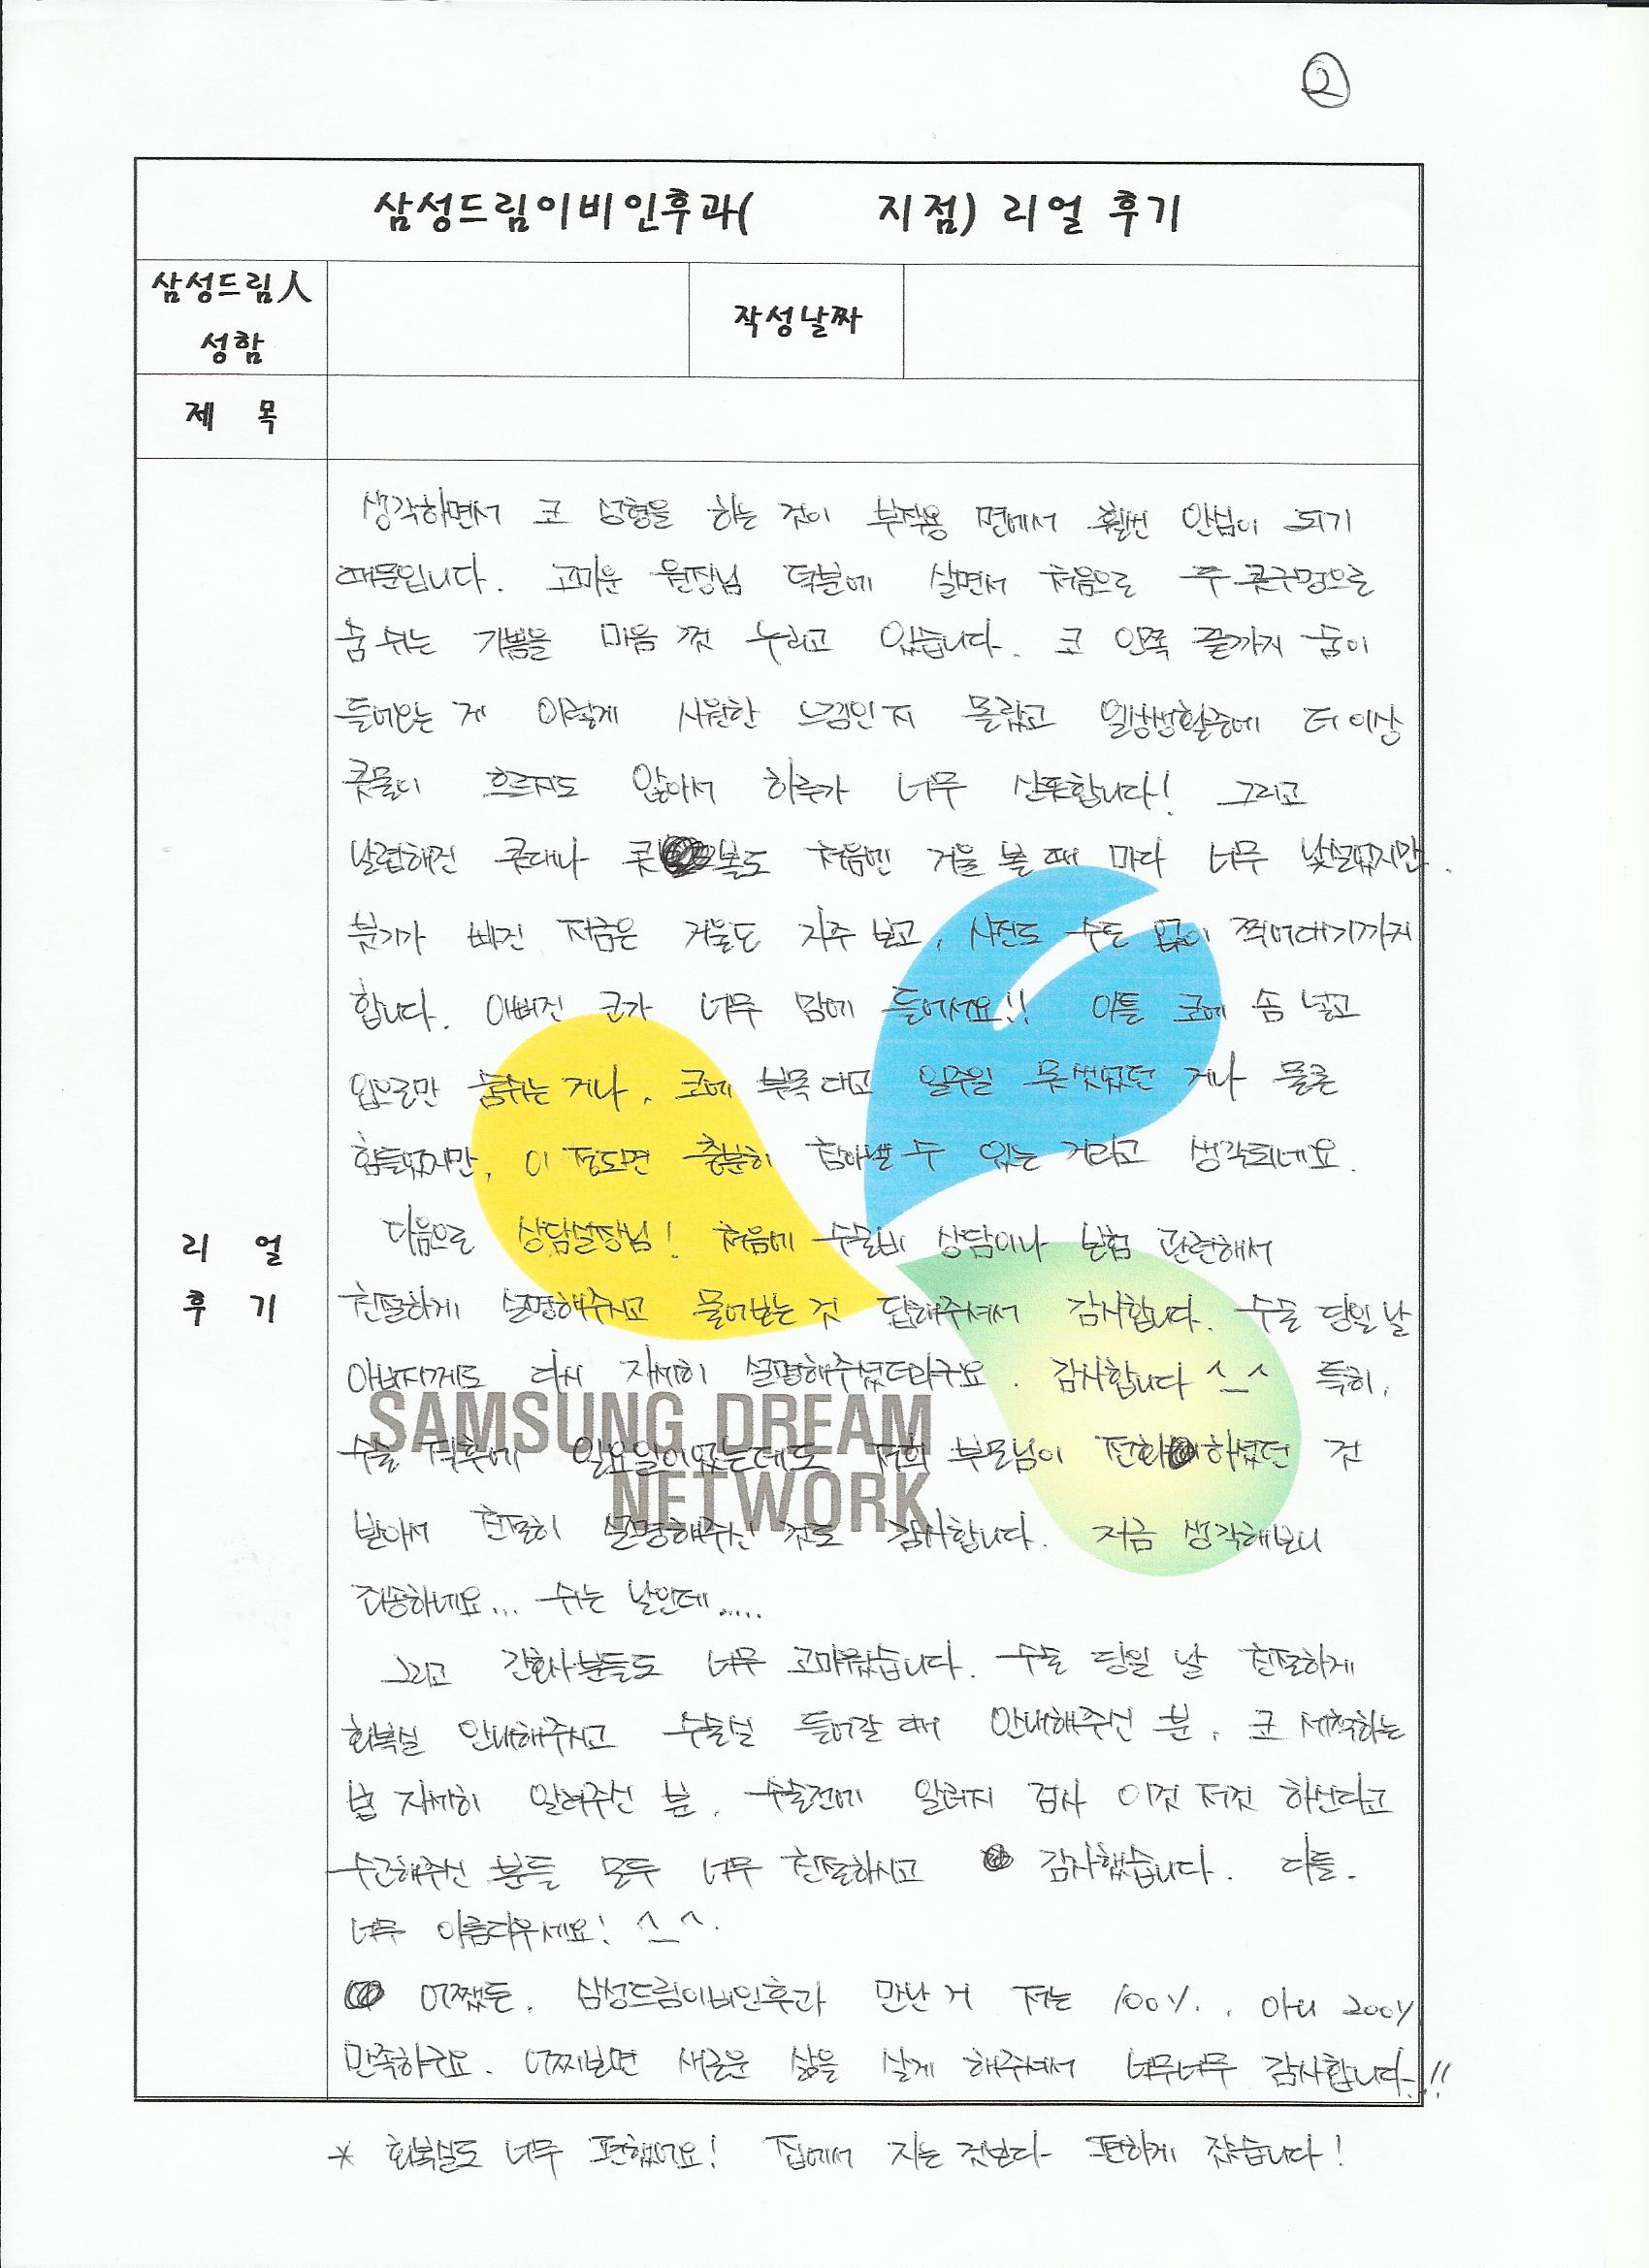 ②
삼성드림이비인후과( 지점) 리얼 후기
삼성드림人
성함
작성날짜
제 목
생각하면서 코 성형을 하는 것이 부작용 면에서 훨씬 안심이 되기
때문입니다. 고마운 원장님 덕분에 살면서 처음으로 두 콧구멍으로
숨쉬는 기쁨을 마음 껏 누리고 있습니다. 코 안쪽 끝까지 숨이
들어오는 게 이렇게 시원한 느낌인지 몰랐고 일상생활중에 더이상
콧물이 흐르지도 않아서 하루가 너무 산뜻합니다! 그리고
날렵해진 콧대나 콧볼도 처음엔 거울 볼 때 마다 너무 낯설었지만.
붓기가 빠진 지금은 거울도 자주 보고, 사진도 수도 없이 찍어대기까지
합니다. 이뻐진 코가 너무 맘에 들어서요!! 이틀 코에 솜 넣고
입으로만 숨쉬는거나, 코에 부목 대고 일주일 못씻었던 거나 물론
힘들었지만, 이 정도면 충분히 참아낼 수 있는 거라고 생각되네요.
다음으로 상담실장님! 처음에 수술비 상담이나 보험 관련해서
친절하게 설명해주시고 물어보는 것 답해주셔서 감사합니다. 수술 당일날
아버지께도 다시 자세히 설명해주셨더라구요. 감사합니다 ^_^ 특히,
수술 직후에 일요일이었는데도 저희 부모님이 전화하셨던 것
받아서 친절히 설명해주신 것도 감사합니다. 지금 생각해보니
죄송하네요... 쉬는 날인데.....
그리고 간호사분들도 너무 고마웠습니다. 수술 당일 날 친절하게
회복실 안내해주시고 수술실 들어갈 때 안내해주신 분, 코 세척하는
법 자세히 알려주신 분, 수술전에 알러지 검사 이것 저것 하신다고
수고해주신 분들 모두 너무 친절하시고 감사했습니다. 다들.
너무 아름다우세요! ^_^.
어쨌든, 삼성드림이비인후과 만난 거 저는 100%.. 아니 200%
만족하구요. 어찌보면 새로운 삶을 살게 해주셔서 너무너무 감사합니다.!!
리 얼
후 기
SAMSUNG DREAM
NETWORK
* 회복실도 너무 편했어요! 집에서 자는 것보다 편하게 잤습니다!